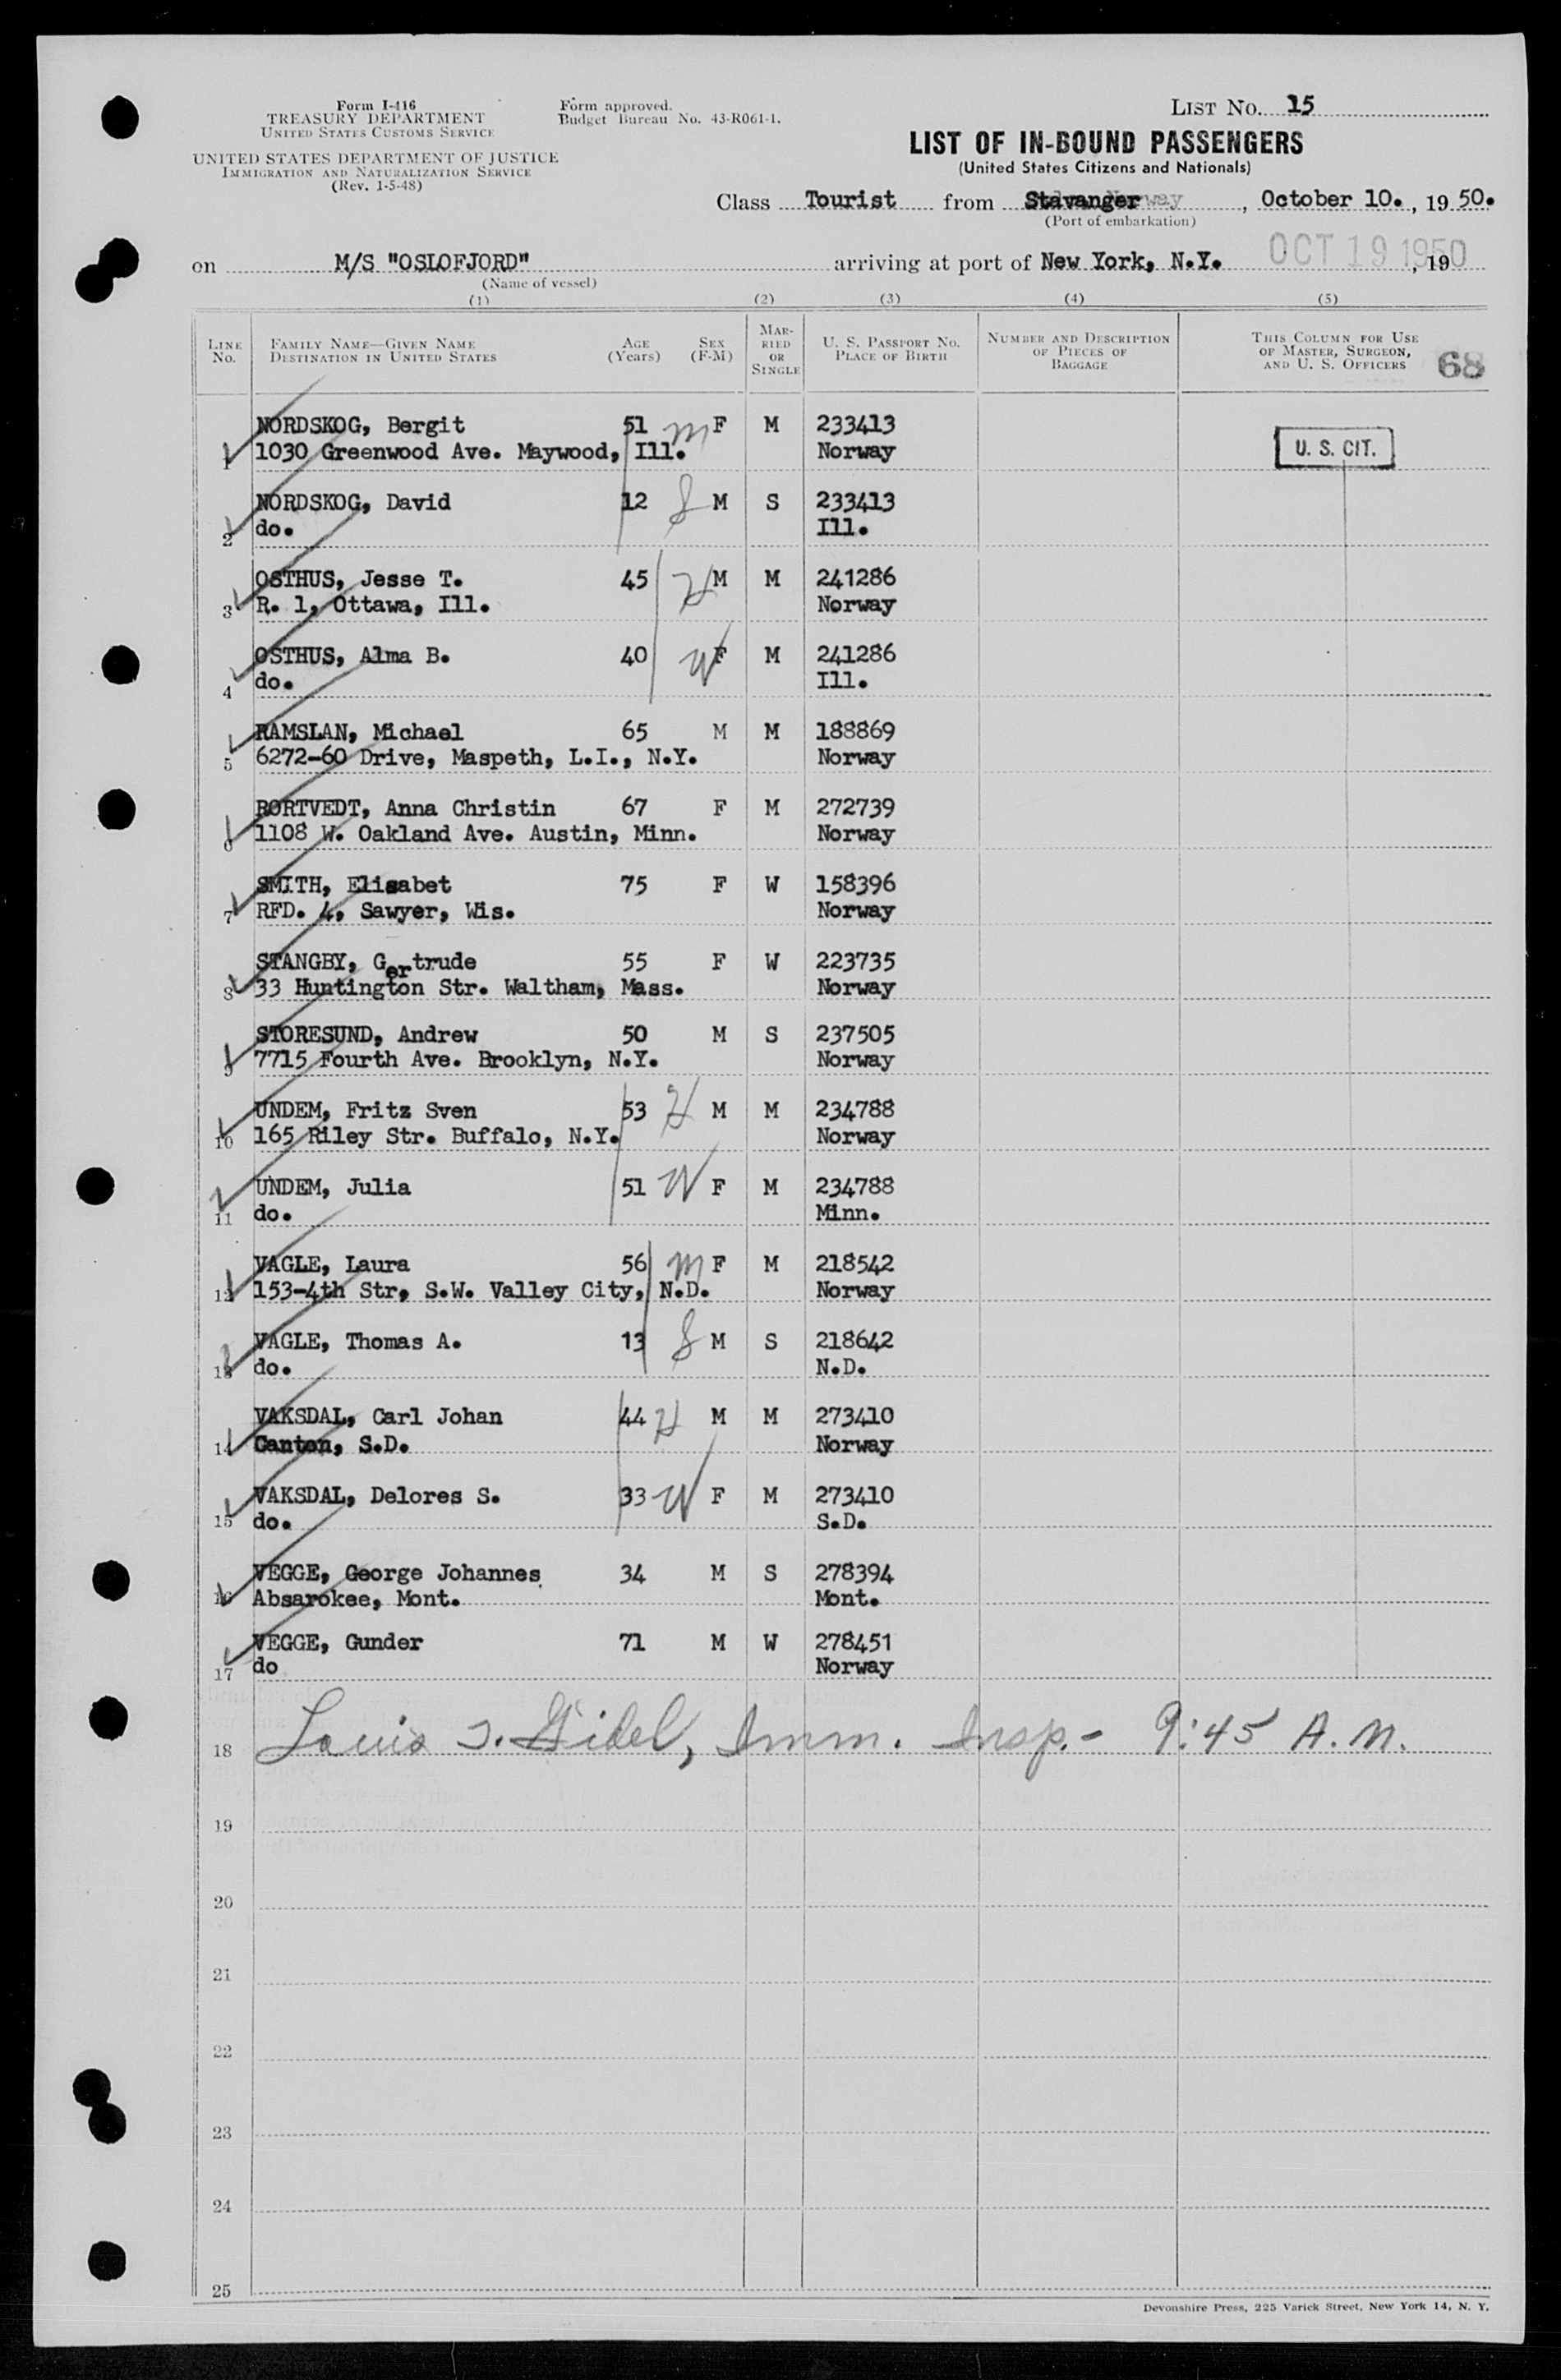 Form I-416
TREASURY DEPARTMENT
UNITED STATES CUSTOMS SERVICE
UNITED STATES DEPARTMENT OF JUSTICE
IMMIGRATION AND NATURALIZATION SERVICE
(Rev. 1-5-48)
Form approved.
Budget Bureau No. 43-R061-1.
LIST No. 15
LIST OF IN-BOUND PASSENGERS
(United States Citizens and Nationals)
Class Tourist from Stavanger, October 10., 19 50.
(Port of embarkation)
on M/S "OSLOFJORD" arriving at port of New York, N.Y. OCT 19 1950, 19
(Name of vessel)
(1) (2) (3) (4) (5)
LINE No. FAMILY NAME—GIVEN NAME DESTINATION IN UNITED STATES AGE (Years) SEX (F-M) MARRIED OR SINGLE U. S. PASSPORT No. PLACE OF BIRTH NUMBER AND DESCRIPTION OF PIECES OF BAGGAGE THIS COLUMN FOR USE OF MASTER, SURGEON, AND U. S. OFFICERS 68
NORDSKOG, Bergit 51 m F M 233413
1 1030 Greenwood Ave. Maywood, Ill. Norway U. S. CIT.
NORDSKOG, David 12 S M S 233413
2 do. Ill.
OSTHUS, Jesse T. 45 H M M 241286
3 R. 1, Ottawa, Ill. Norway
OSTHUS, Alma B. 40 W F M 241286
4 do. Ill.
RAMSLAN, Michael 65 M M 188869
5 6272-60 Drive, Maspeth, L.I., N.Y. Norway
RORTVEDT, Anna Christin 67 F M 272739
6 1108 W. Oakland Ave. Austin, Minn. Norway
SMITH, Elisabet 75 F W 158396
7 RFD. 4, Sawyer, Wis. Norway
STANGBY, Gertrude 55 F W 223735
8 33 Huntington Str. Waltham, Mass. Norway
STORESUND, Andrew 50 M S 237505
9 7715 Fourth Ave. Brooklyn, N.Y. Norway
UNDEM, Fritz Sven 53 H M M 234788
10 165 Riley Str. Buffalo, N.Y. Norway
UNDEM, Julia 51 W F M 234788
11 do. Minn.
VAGLE, Laura 56 m F M 218542
12 153-4th Str, S.W. Valley City, N.D. Norway
VAGLE, Thomas A. 13 S M S 218642
13 do. N.D.
VAKSDAL, Carl Johan 44 H M M 273410
14 Canton, S.D. Norway
VAKSDAL, Delores S. 33 W F M 273410
15 do. S.D.
VEGGE, George Johannes 34 M S 278394
16 Absarokee, Mont. Mont.
VEGGE, Gunder 71 M W 278451
17 do Norway
18 Louis J. Gidel, Imm. Insp. - 9:45 A.M.
19
20
21
22
23
24
25
Devonshire Press, 225 Varick Street, New York 14, N. Y.